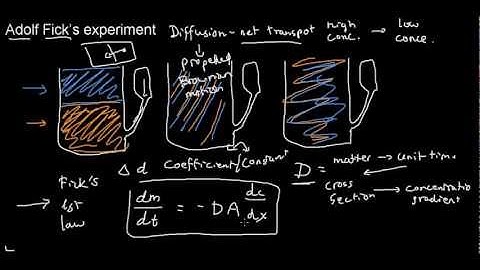 Adolf Fick's experiment
Diffusion - net transpot high conc. → low conce.
propelled
Brownian
motion
Δd
Coefficient/Constant
D = matter → unit time
cross section → concentratio gradient
Fick's
1st
law
dm/dt = -DA dc/dx